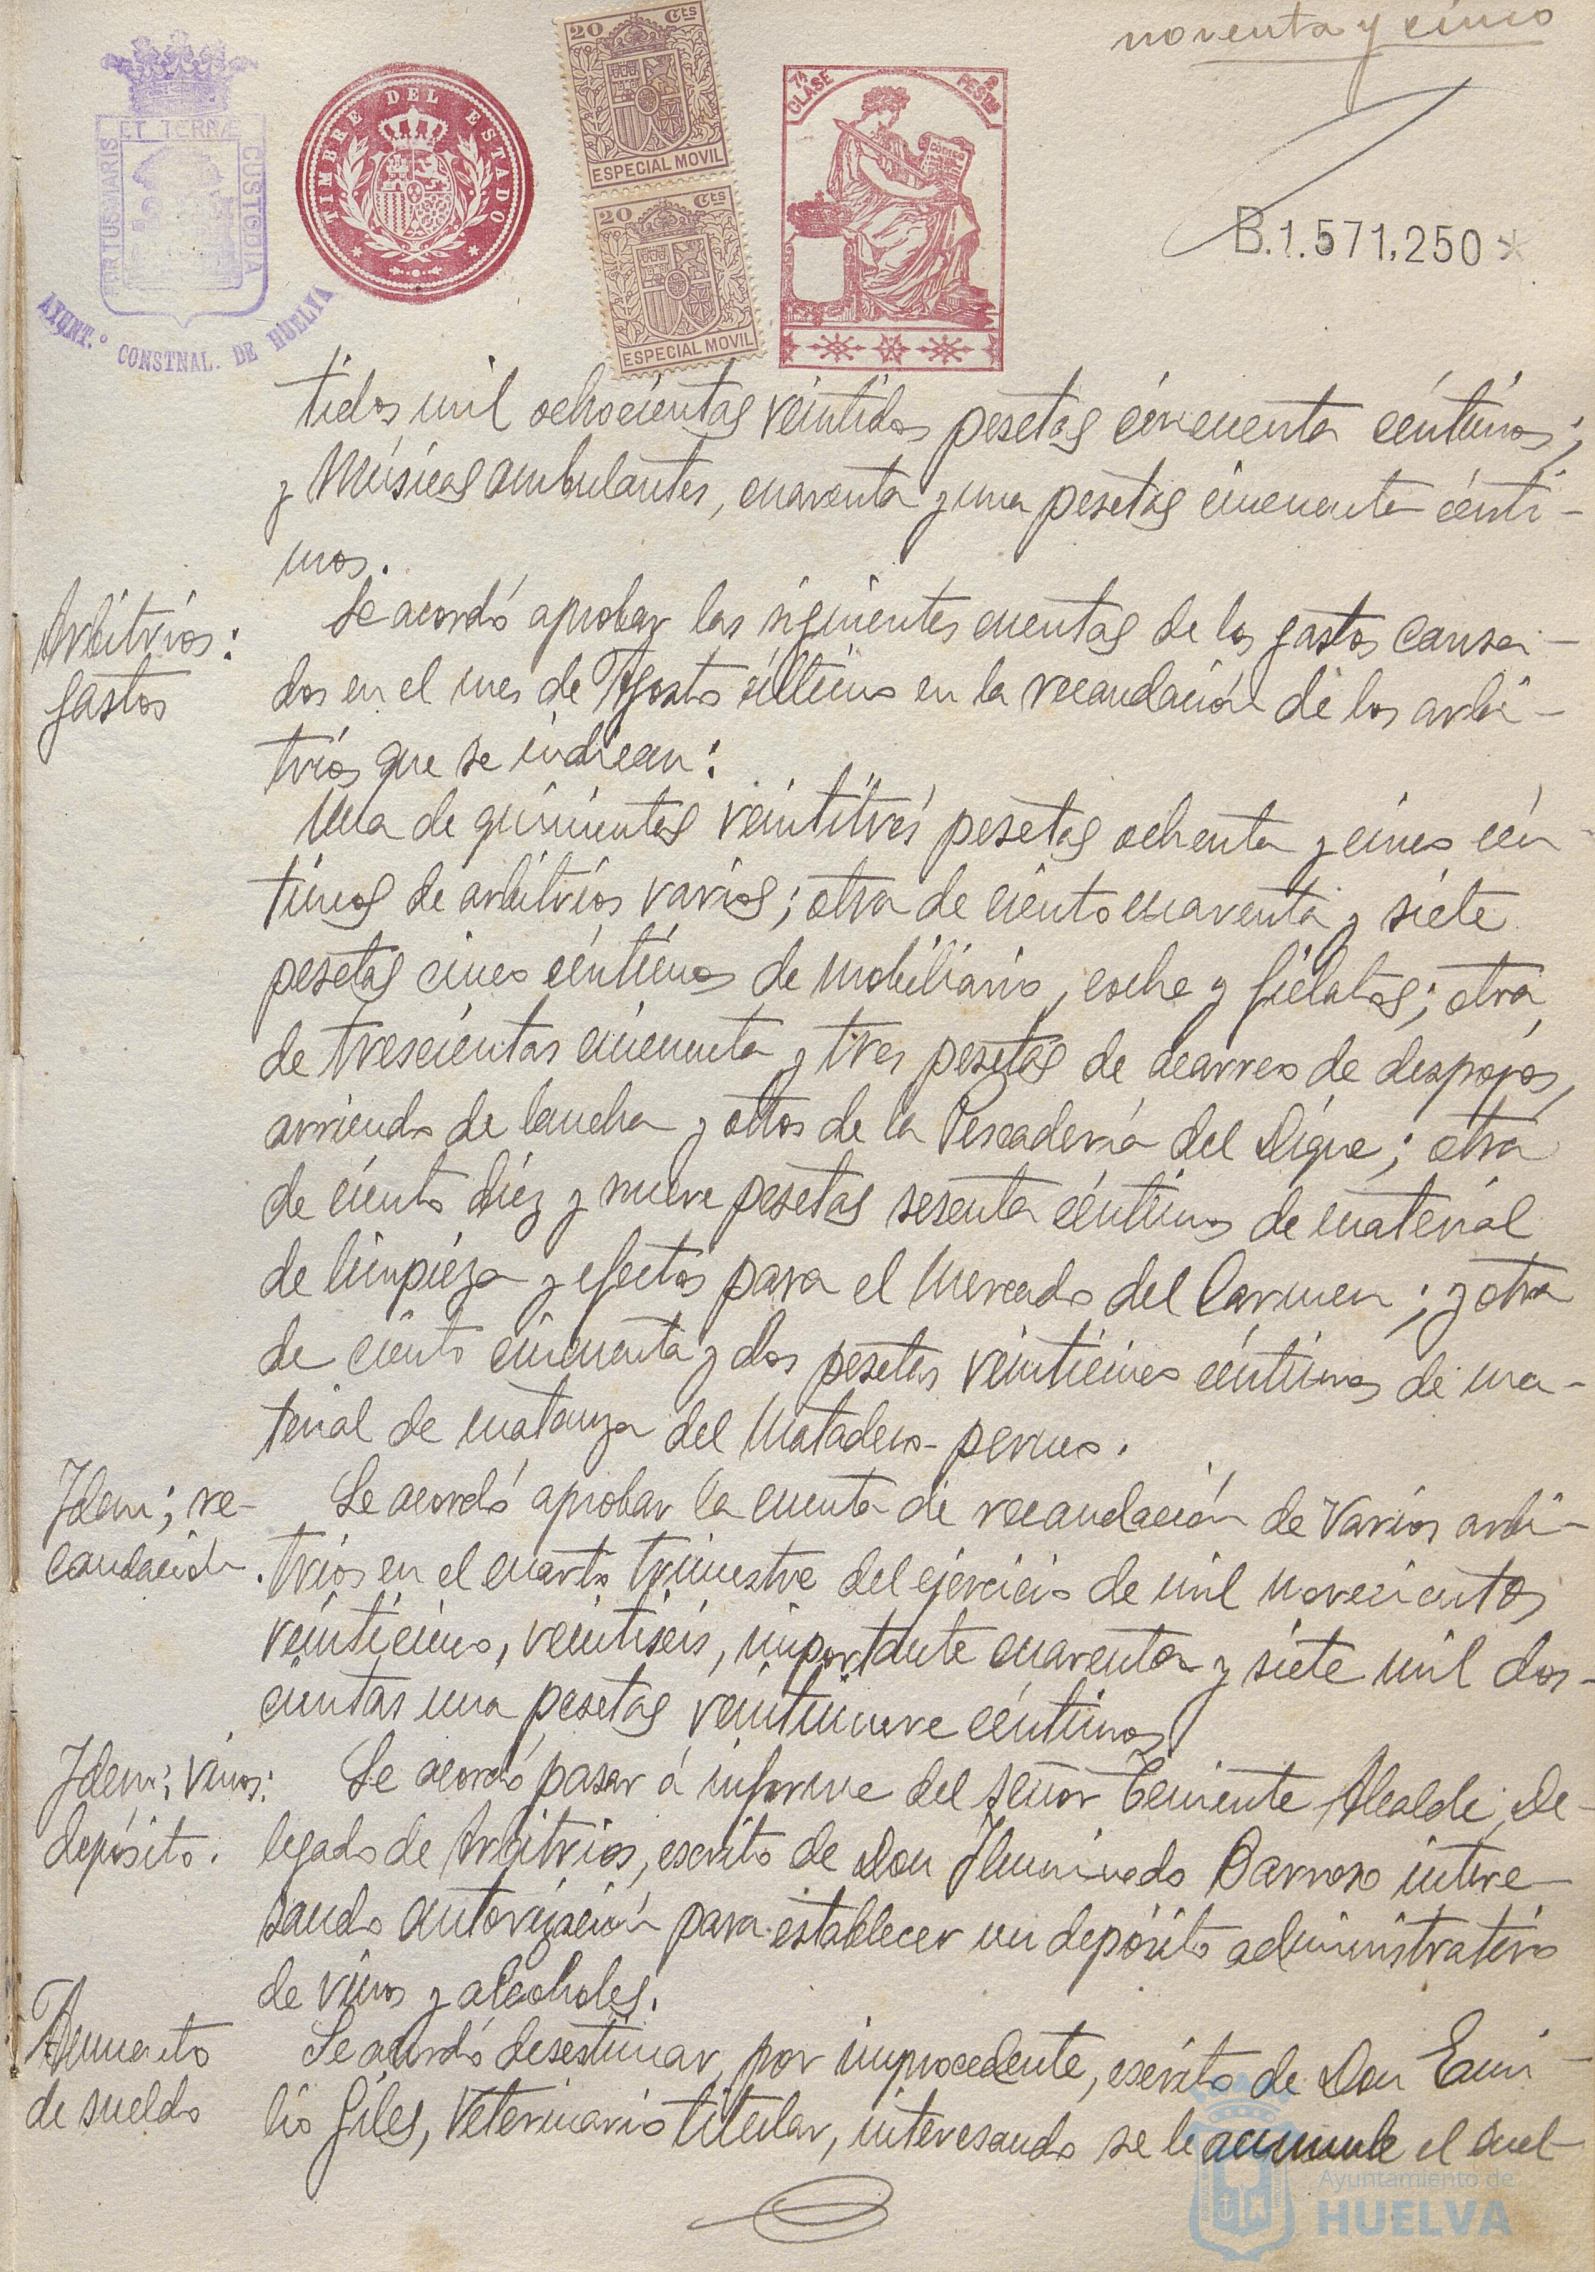 noventa y cinco
PORTUS MARIS ET TERRÆ CUSTODIA
AYUNT.º CONSTNAL. DE HUELVA
TIMBRE DEL ESTADO
20 Cts
ESPECIAL MOVIL
20 Cts
ESPECIAL MOVIL
7ª CLASE
2 PESTAS
CODIGO
B.1.571.250*
tidos mil ochocientas veintidos pesetas cincuenta céntimos;
y Músicas ambulantes, cuarenta y una pesetas cincuenta cénti-
mos.
Arbitrios:
gastos
Se acordó aprobar las siguientes cuentas de los gastos causa-
dos en el mes de Agosto último en la recaudación de los arbi-
trios que se indican:
Una de quinientas veintitrés pesetas ochenta y cinco cén-
timos de arbitrios varios; otra de ciento cuarenta y siete
pesetas cinco céntimos de mobiliario, coche y fielatos; otra
de trescientas cincuenta y tres pesetas de acarreo de despojos,
arriendo de lancha y otros de la Pescadería del Dique; otra
de ciento diez y nueve pesetas sesenta céntimos de material
de limpieza y efectos para el Mercado del Carmen; y otra
de ciento cincuenta y dos pesetas veinticinco céntimos de ma-
terial de matanza del Matadero-perneo.
Idem; re-
caudación.
Se acordó aprobar la cuenta de recaudación de varios arbi-
trios en el cuarto trimestre del ejercicio de mil novecientos
veinticinco, veintiseis, importante cuarenta y siete mil dos-
cientas una pesetas veintinueve céntimos
Idem; vinos:
depósito.
Se acordó pasar á informe del señor Teniente Alcalde, De-
legado de Arbitrios, escrito de Don Iluminado Barroso intere-
sando autorización para establecer un depósito administrativo
de vinos y alcoholes.
Aumento
de sueldo
Se acordó desestimar, por improcedente, escrito de Don Emi-
lio Giles, Veterinario titular, interesando se le acumule el suel-
Ayuntamiento de
HUELVA